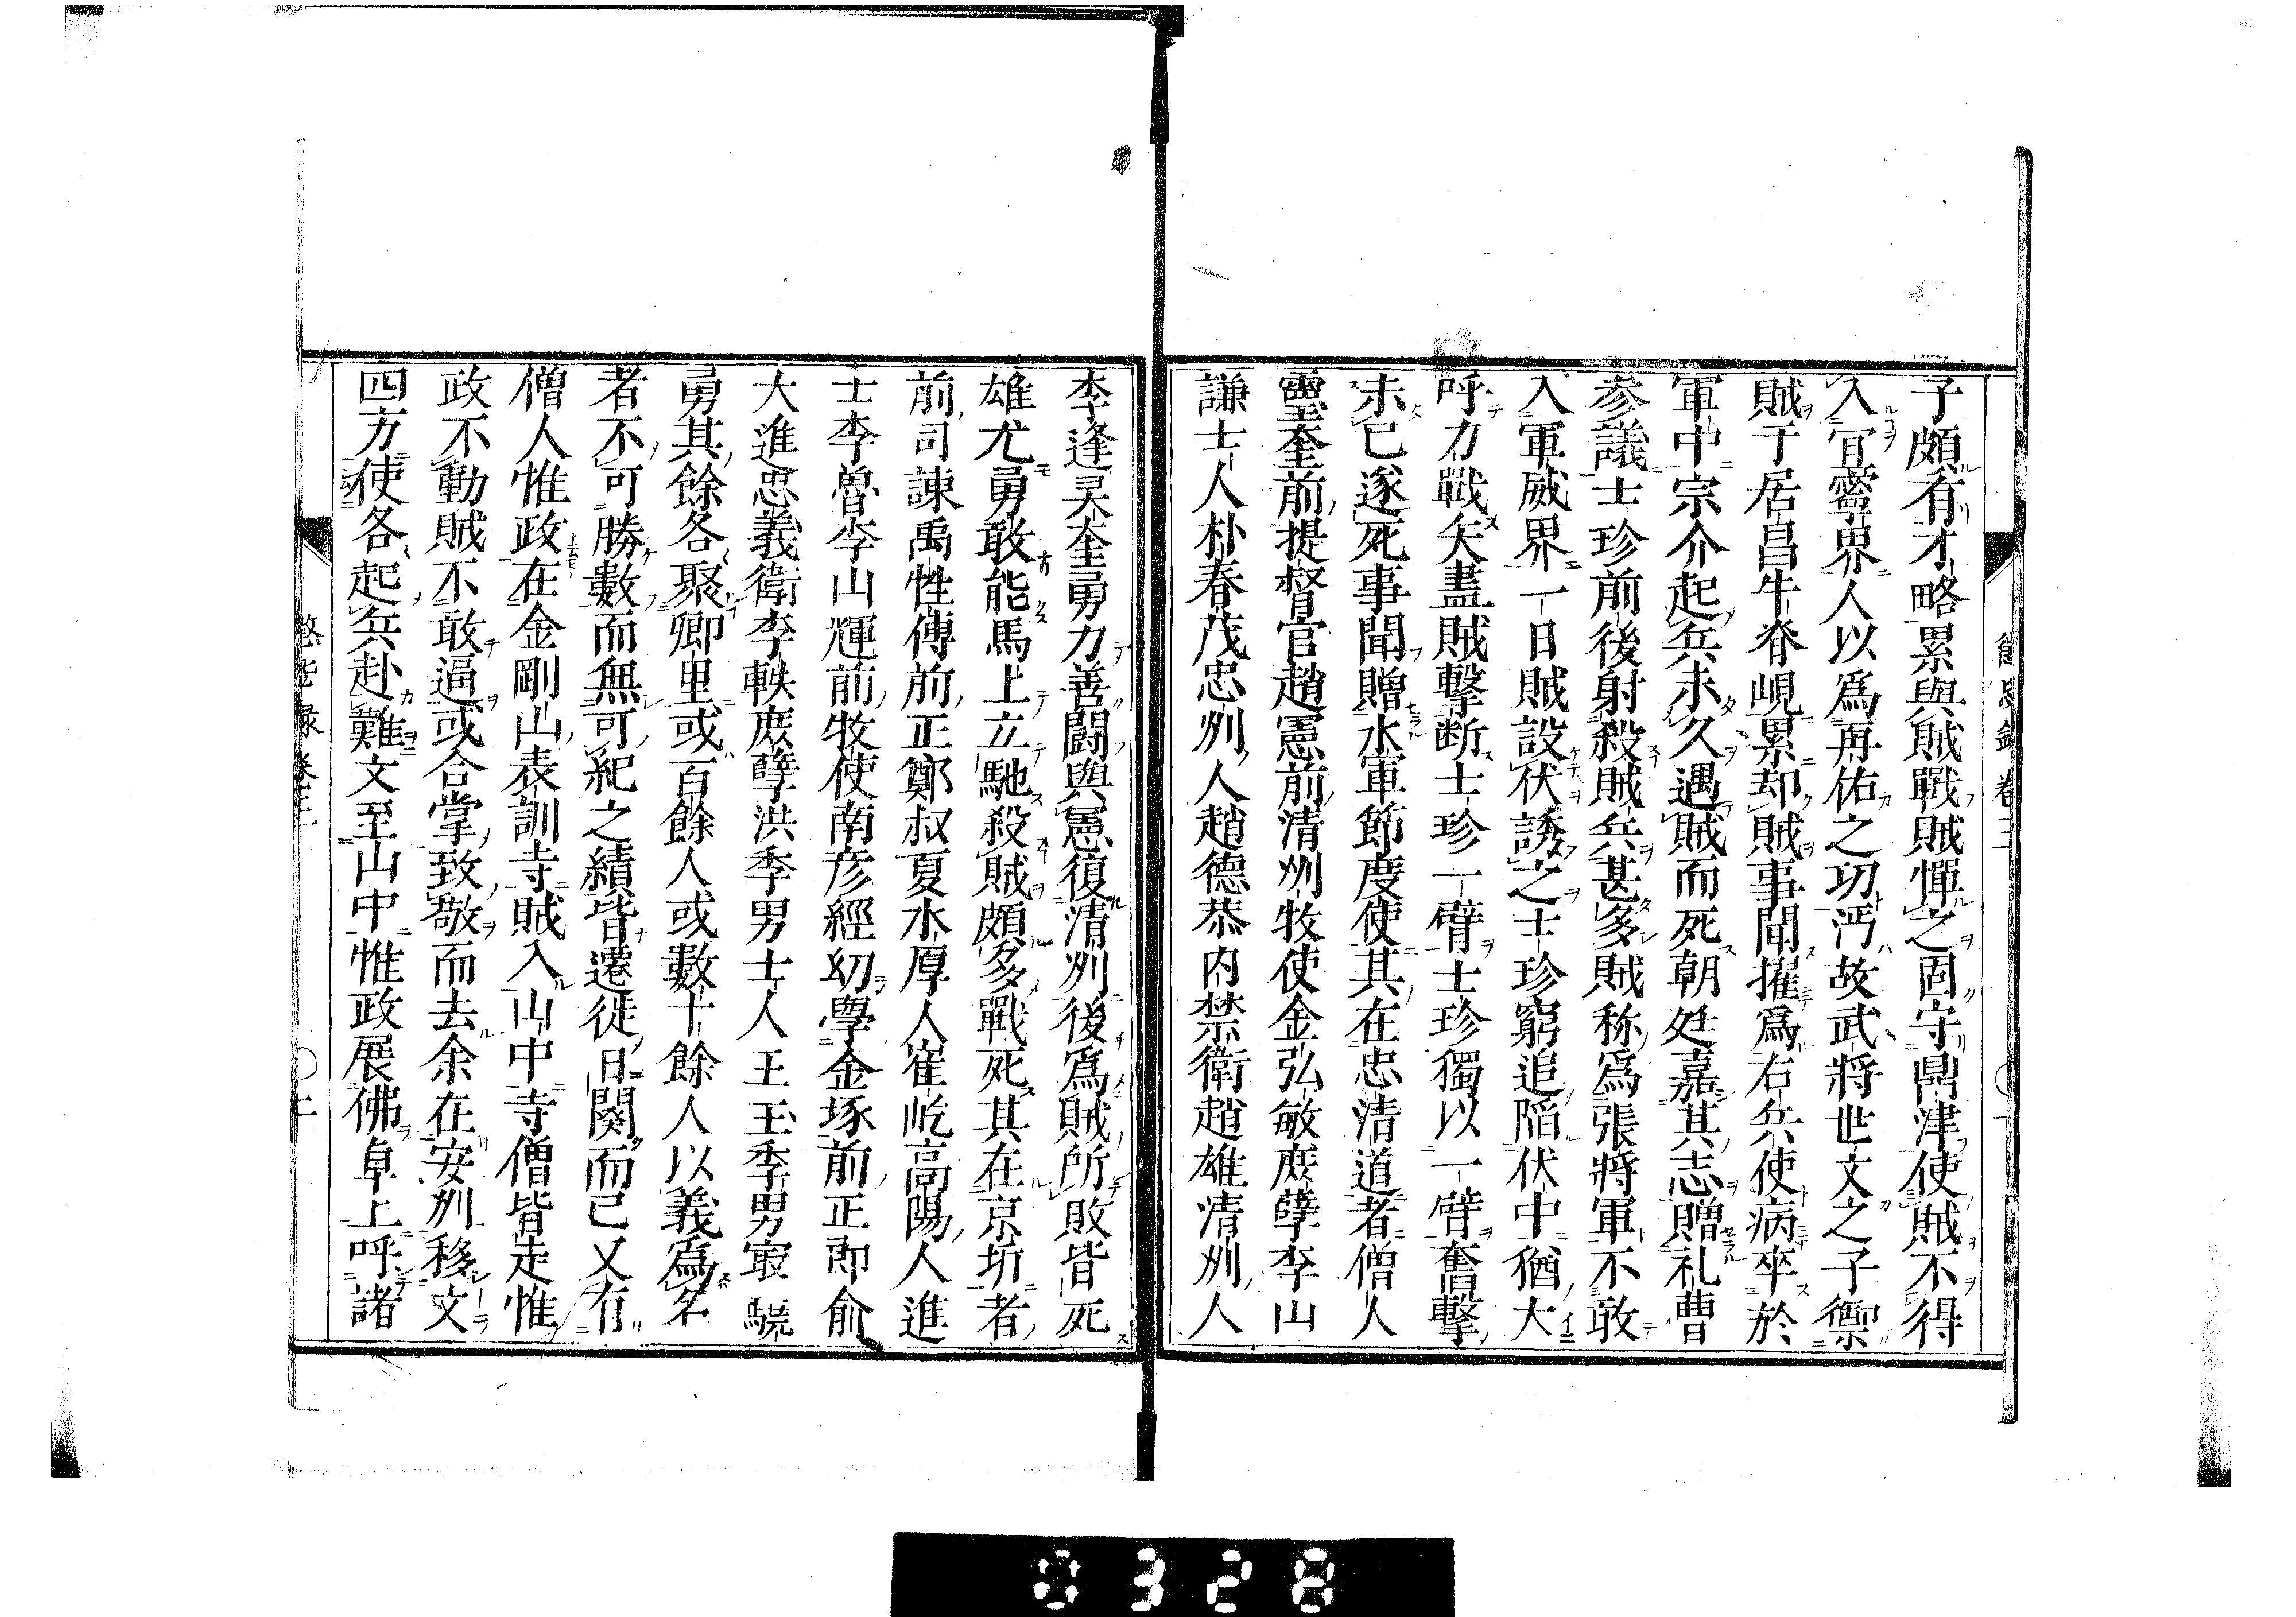 子頗有才略累與賊戰賊憚之固守鼎津使賊不得
入宜寧界人以為再佑之功沔故武將世文之子禦
賊于居昌牛脊峴累却賊事聞擢為右兵使病卒於
軍中宗介起兵未久遇賊而死朝廷嘉其志贈礼曹
参議士珍前後射殺賊兵甚多賊称為張將軍不敢
入軍威界一日賊設伏誘之士珍窮追陥伏中猶大
呼力戰矢盡賊擊断士珍一臂士珍獨以一臂奮擊
未已遂死事聞贈水軍節度使其在忠清道者僧人
靈奎前提督官趙憲前清州牧使金弘敏庶孽李山
謙士人朴春茂忠州人趙德恭内禁衛趙雄清州人
李逢灵奎勇力善鬪與憲復清州後為賊所敗皆死
雄尤勇敢能馬上立馳殺賊頗多戰死其在京坊者
前司諌禹性傳前正鄭叔夏水原人崔屹高陽人進
士李魯李山輝前牧使南彦經幼學金琢前正郎俞
大進忠義衛李軼庶孽洪季男士人王玉季男寂驍
勇其餘各聚郷里或百餘人或數十餘人以義為名
者不可勝數而無可紀之績皆遷徙日閱而已又有
僧人惟政在金剛山表訓寺賊入山中寺僧皆走惟
政不動賊不敢逼或合掌致敬而去余在安州移文
四方使各起兵赴難文至山中惟政展佛卓上呼諸
懲毖録巻三
〇二
0328